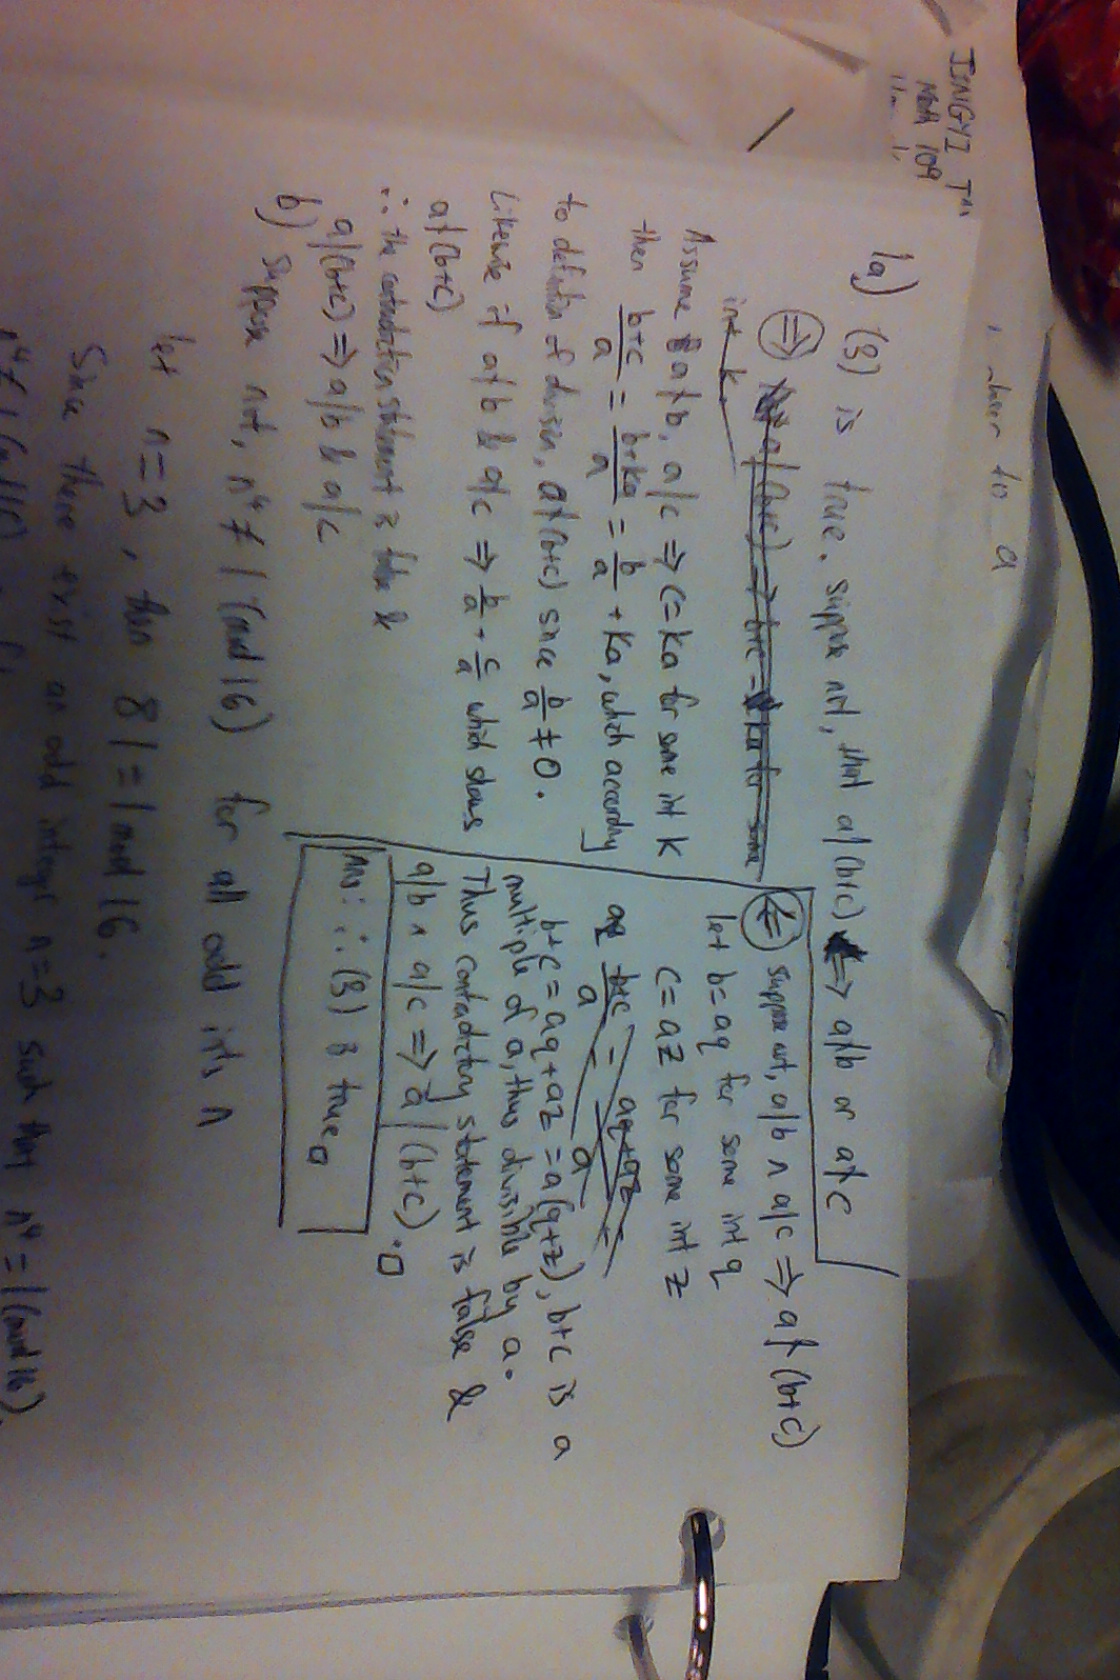 JINGYI
Math 109
1a) (3) is true. suppose not, that a|(b+c) <=> a∤b or a∤c
(=>) a|(b+c) => b+c = ka for some
int k.
Assume a∤b, a|c => c=ka for some int k
then b+c/a = b+ka/a = b/a + ka, which according
to definition of division, a∤(b+c) since b/a ≠ 0.
Likewise if a∤b & a∤c => b/a + c/a which shows
a∤(b+c)
∴ the contradiction statement is false &
a|(b+c) => a|b & a|c
(<=) suppose not, a|b ∧ a|c => a∤(b+c)
let b=aq for some int q
c=az for some int z
b+c/a = aq+az/a =
b+c = aq+az = a(q+z), b+c is a
multiple of a, thus divisible by a.
Thus contradictory statement is false &
a|b ∧ a|c => a|(b+c). □
Ans: ∴ (3) is true □
b) suppose not, n⁴ ≢ 1 (mod 16) for all odd ints n
let n=3, then 81 = 1 mod 16.
Since there exist an odd integer n=3 such that n⁴ = 1 (mod 16),
to a